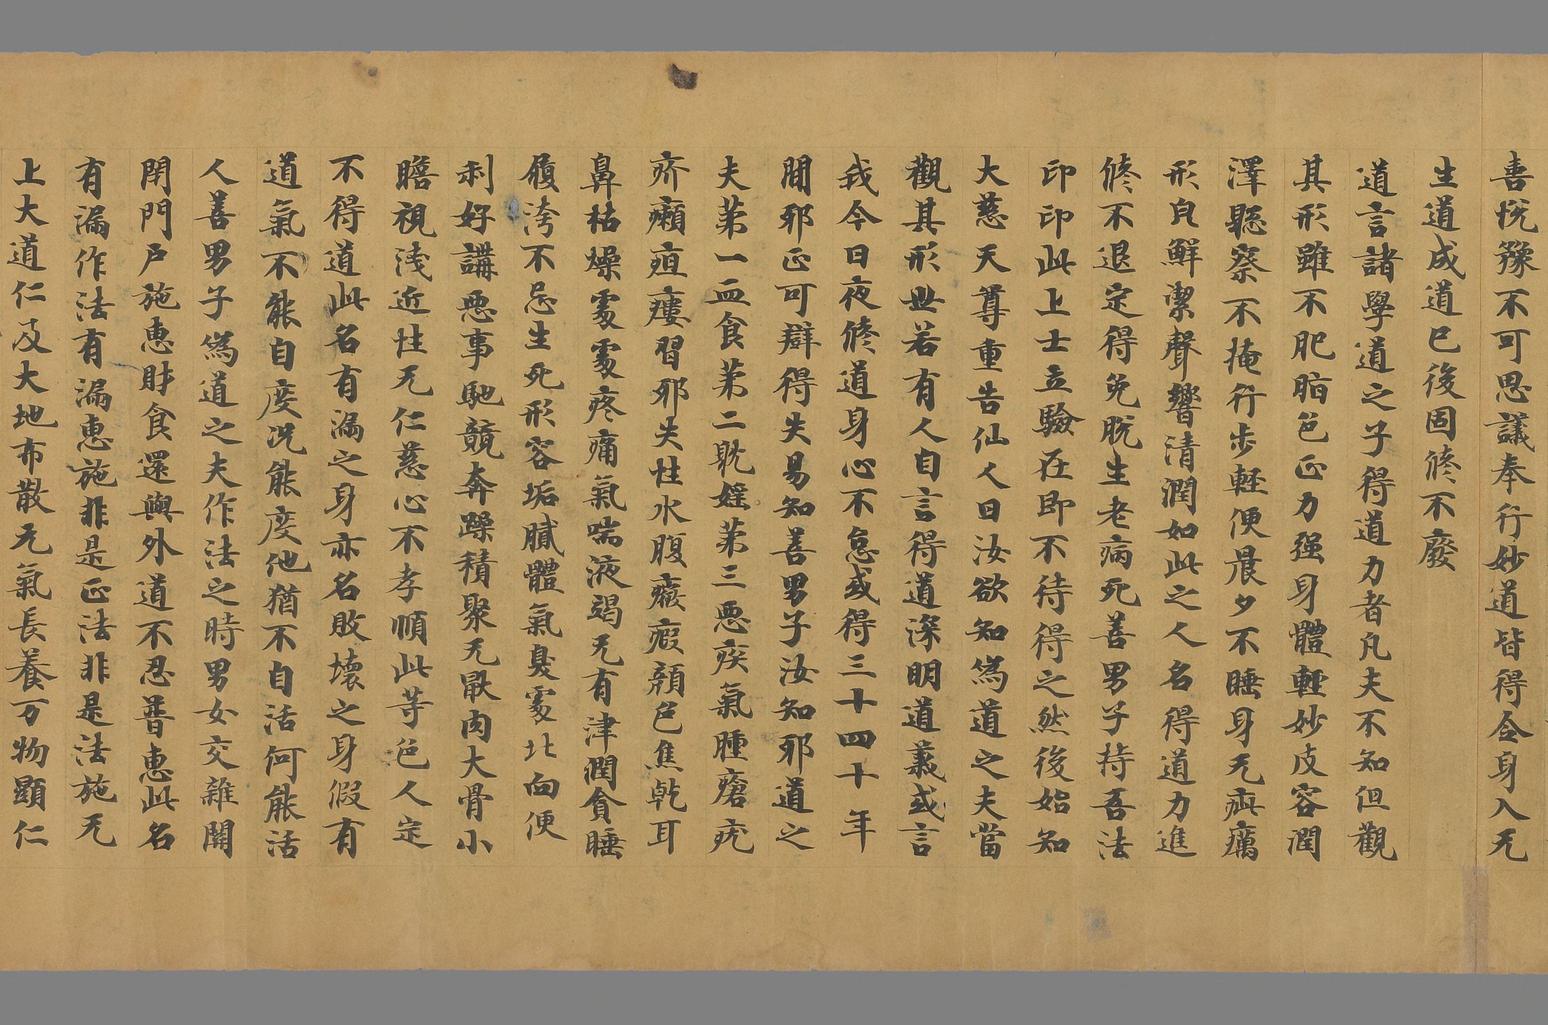 喜悅豫不可思議奉行妙道皆得合身入无
生道成道已後固修不廢
道言諸學道之子得道力者凡夫不知但觀
其形雖不肥脂色正力强身體輕妙皮容潤
澤聽察不掩行步輕便晨夕不睡身无疾癘
形皃鮮潔聲響清潤如此之人名得道力進
修不退定得免脫生老病死善男子持吾法
印印此上士立驗在即不待得之然後始知
大慈天尊重告仙人曰汝欲知為道之夫當
觀其形世若有人自言得道深明道義或言
我今日夜修道身心不怠或得三十四十年
間邪正可辯得失易知善男子汝知邪道之
夫苐一血食苐二耽婬苐三惡疾氣腫瘡疣
疥癩疽瘻習邪失性水腹癥瘕顏色焦乾耳
鼻枯燥處處疼痛氣喘液竭无有津潤貪睡
履洿不忌生死形容垢膩體氣臭處北向便
利好講惡事馳競奔躁積聚无猒肉大骨小
瞻視淺近性无仁慈心不孝順此等色人定
不得道此名有漏之身亦名敗壞之身假有
道氣不能自度況能度他猶不自活何能活
人善男子為道之夫作法之時男女交雜開
閉門戶施惠財食還與外道不忍普惠此名
有漏作法有漏惠施非是正法非是法施无
上大道仁及大地布散元氣長養万物顯仁